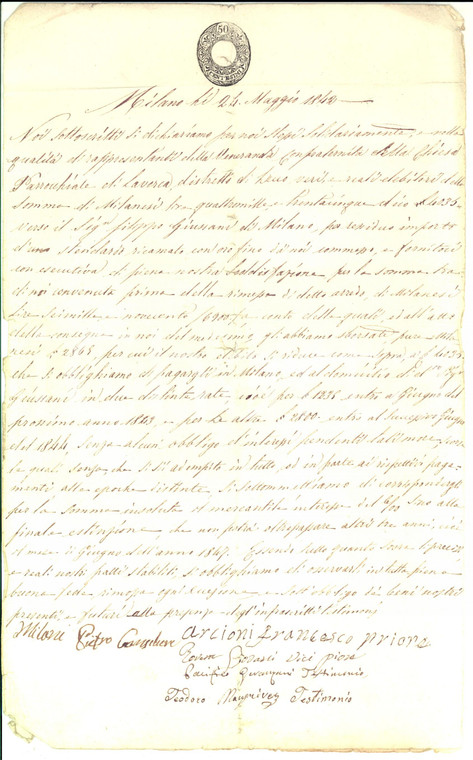 50
CENTESIMI
Milano li 24 Maggio 1842
Noi sottoscritti si dichiariamo per noi stessi solidariamente, e nella
qualità di rappresentanti della Veneranda Confraternita della Chiesa
Parrochiale di Laorca, distretto di Lecco veri e reali debitori della
somma di Milanesi lire quattromille e trentacinque dico £ 4035
verso il Sig.r Filippo Giussani di Milano, per residuo importo
d'uno stendardo ricamato con oro fino da noi commesso, e fornitoci
con esecutiva di piena nostra soddisfazione per la somma tra
di noi convenuta prima della rimessa di detto arredo, di Milanesi
Lire seimille e novecento £ 6900 a conto delle quali, ed all'atto
della consegna in noi del medesimo, gli abbiamo sborsate pure Milanesi
£ 2865 per cui il nostro debito si riduce come sopra, a £ 4035
che si obblighiamo di pagargli in Milano, ed al domicilio di d.o Sig.r
Giussani in due distinte rate, cioè per £ 1235 entro il Giugno del
prossimo anno 1843, e per le altre £ 2800 entro il successivo Giugno
del 1844, senza alcun obbligo d'interessi pendenti tali more, scorse
le quali senza che si sia adempito in tutto, od in parte ai rispettivi pagamenti
alle epoche distinte, si sottomettiamo di corrispondergli
per la somma insoluta il mercantile interesse del 6/00 sino alla
finale estinzione, che non potrà oltrepassare altri tre anni, cioè
il mese di Giugno dell'anno 1847. Essendo tutto quanto sopra i precisi
e reali nostri patti stabiliti, si obblighiamo di osservarli in tutta piena
buona fede rimossa ogni eccezione, e sott'obbligo dei beni nostri
presenti, e futuri alla presenza degl'infrascritti testimonj
Pietro
Arcioni Francesco Priore
Vici Priore
Testimonio
Teodoro Testimonio